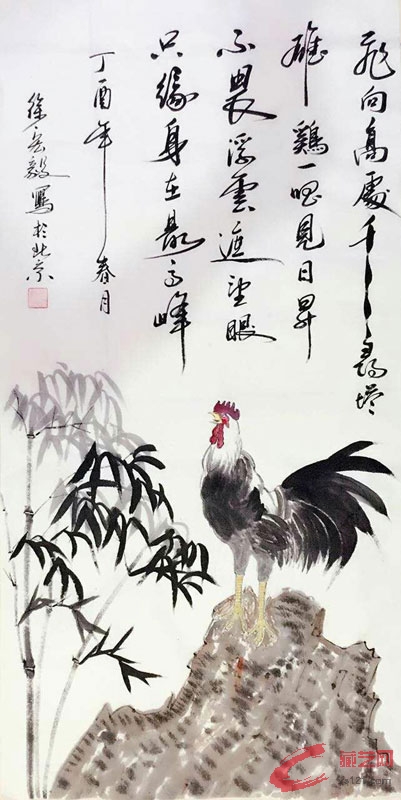 飛向高處千尋塔
雄鷄一唱見日昇
不畏浮雲遮望眼
只緣身在最高峰
丁酉年春月
徐毅寫於北京
藏艺网